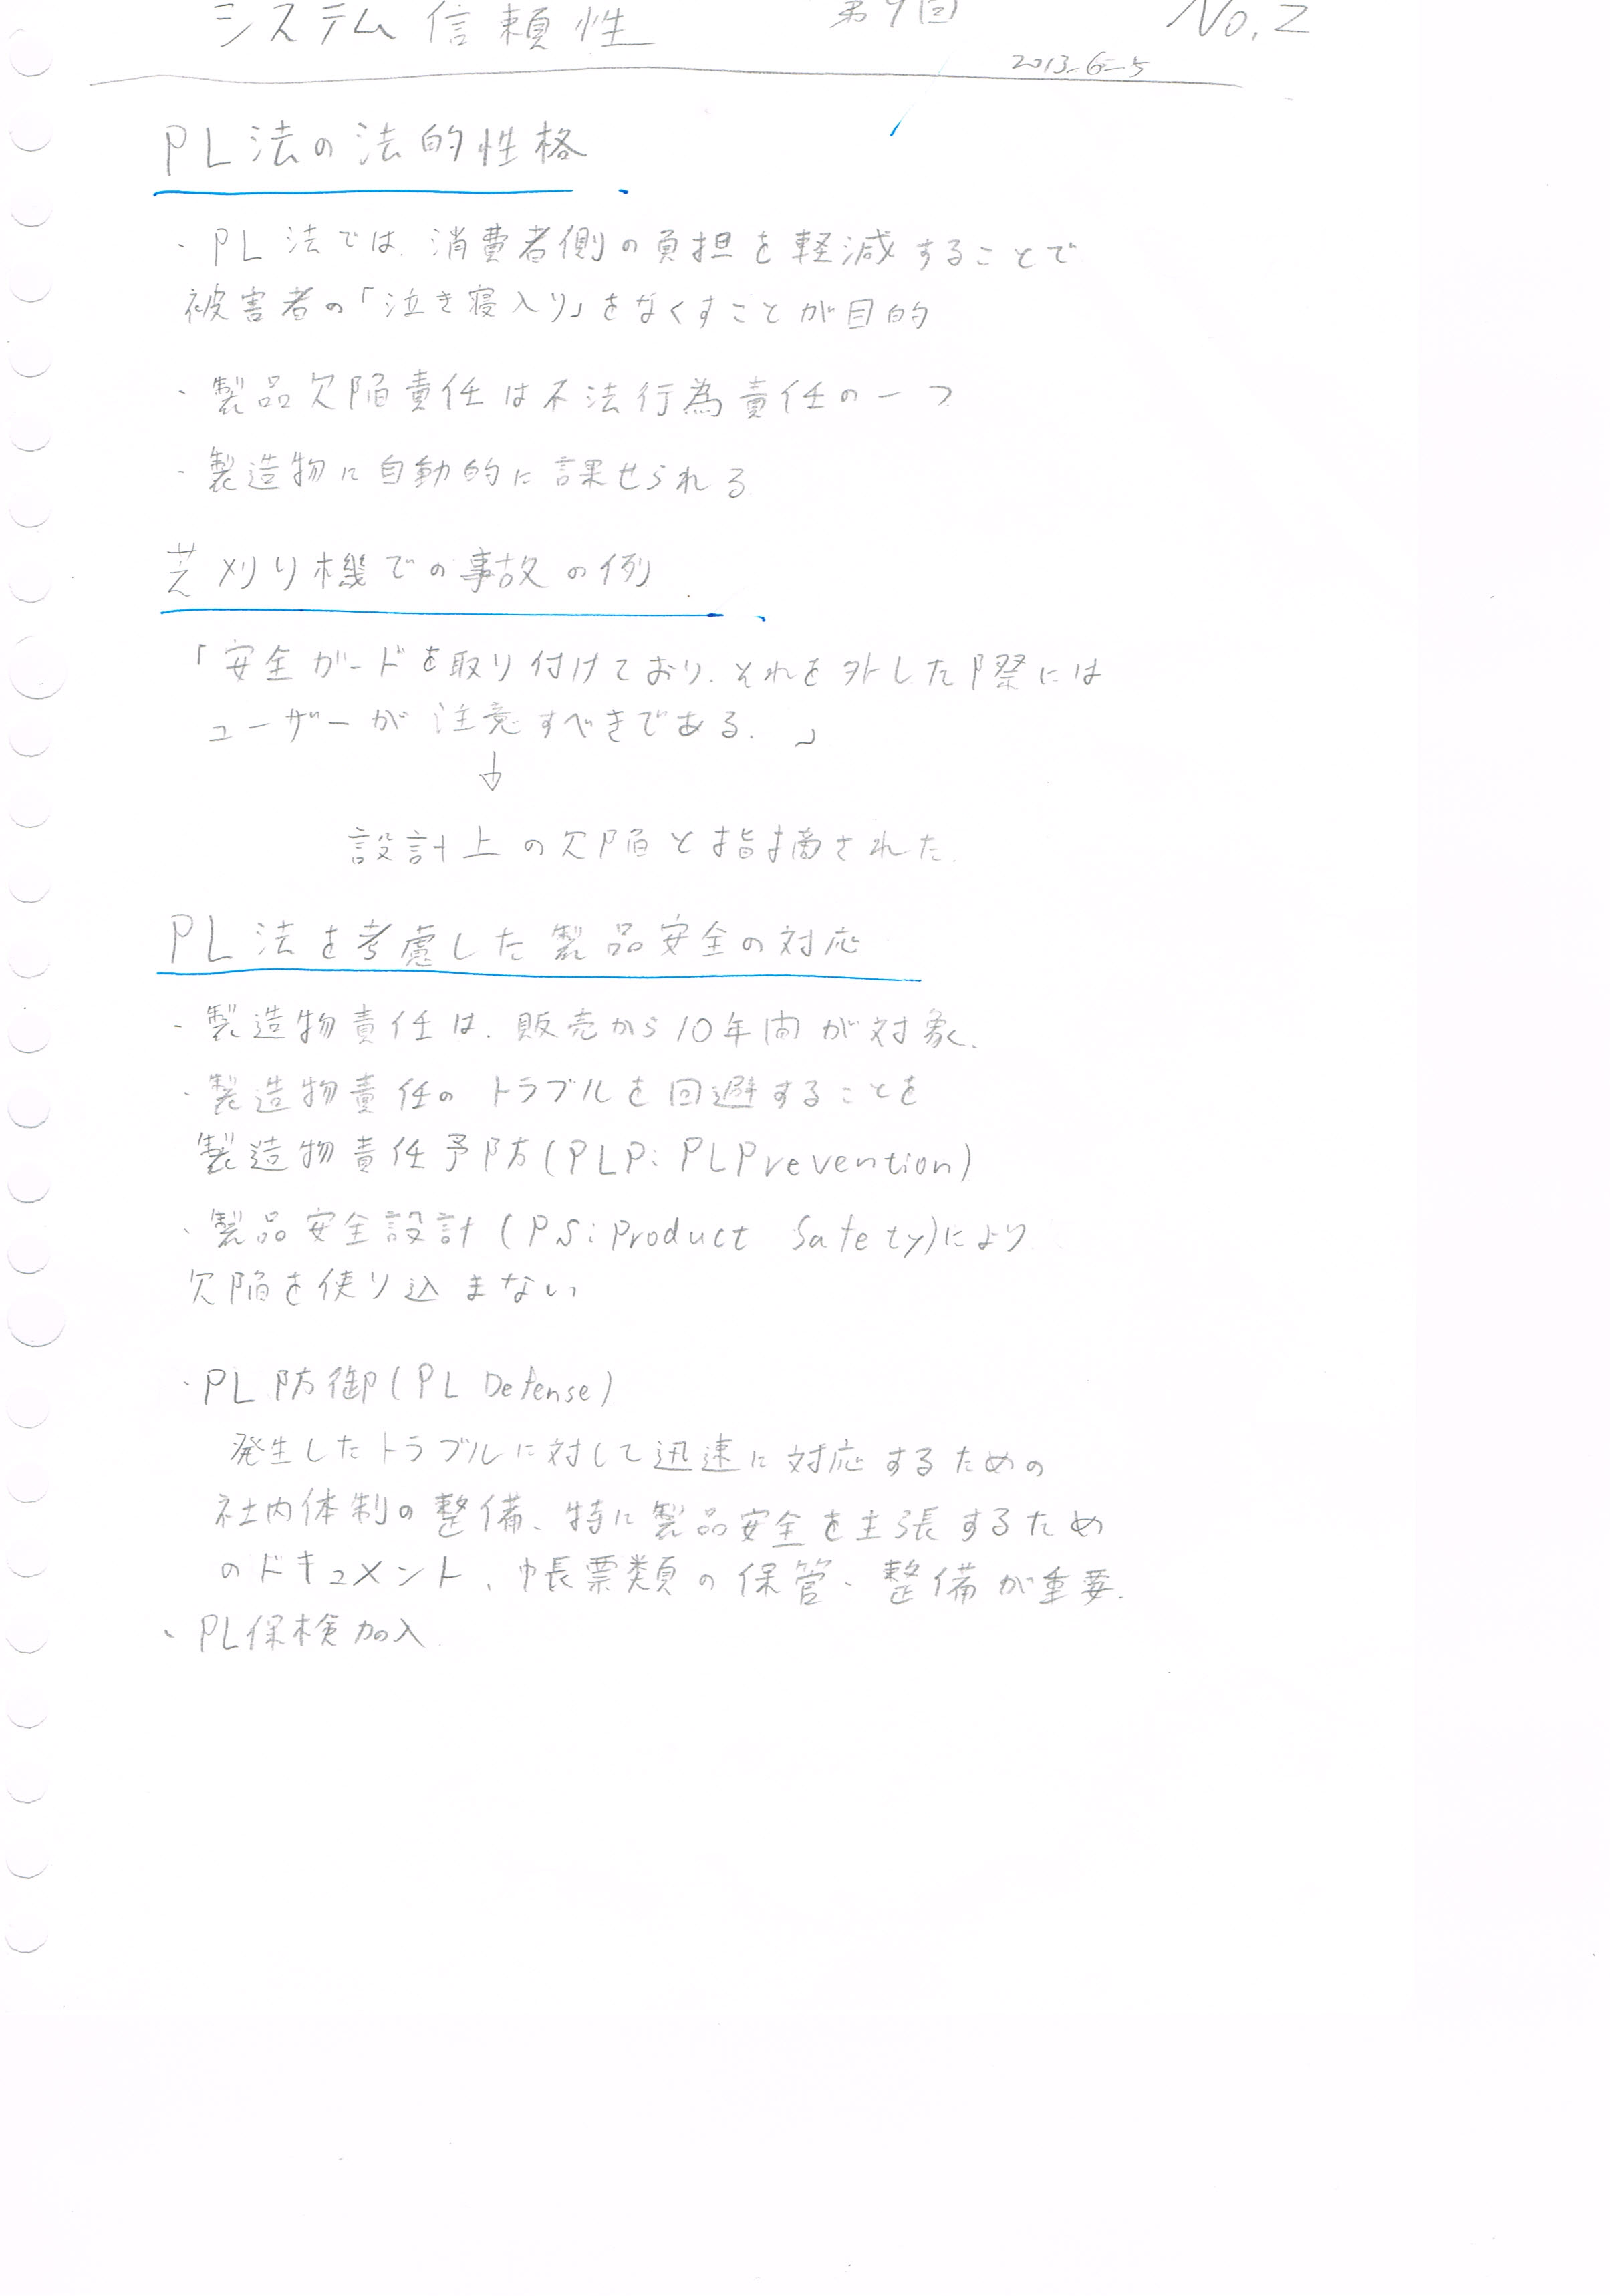 システム信頼性 第9回 No.2
2013-6-5
PL法の法的性格
・PL法では、消費者側の負担を軽減することで
被害者の「泣き寝入り」をなくすことが目的
・製品欠陥責任は不法行為責任の一つ
・製造物に自動的に課せられる
芝刈り機での事故の例
「安全ガードを取り付けており、それを外した際には
ユーザーが注意すべきである。」
↓
設計上の欠陥と指摘された。
PL法を考慮した製品安全の対応
・製造物責任は、販売から10年間が対象。
・製造物責任のトラブルを回避することを
製造物責任予防(PLP:PLPrevention)
・製品安全設計(PS:Product Safety)により
欠陥を使り込まない
・PL防御(PL Defense)
発生したトラブルに対して迅速に対応するための
社内体制の整備、特に製品安全を主張するため
のドキュメント、帳票類の保管・整備が重要。
・PL保検加入